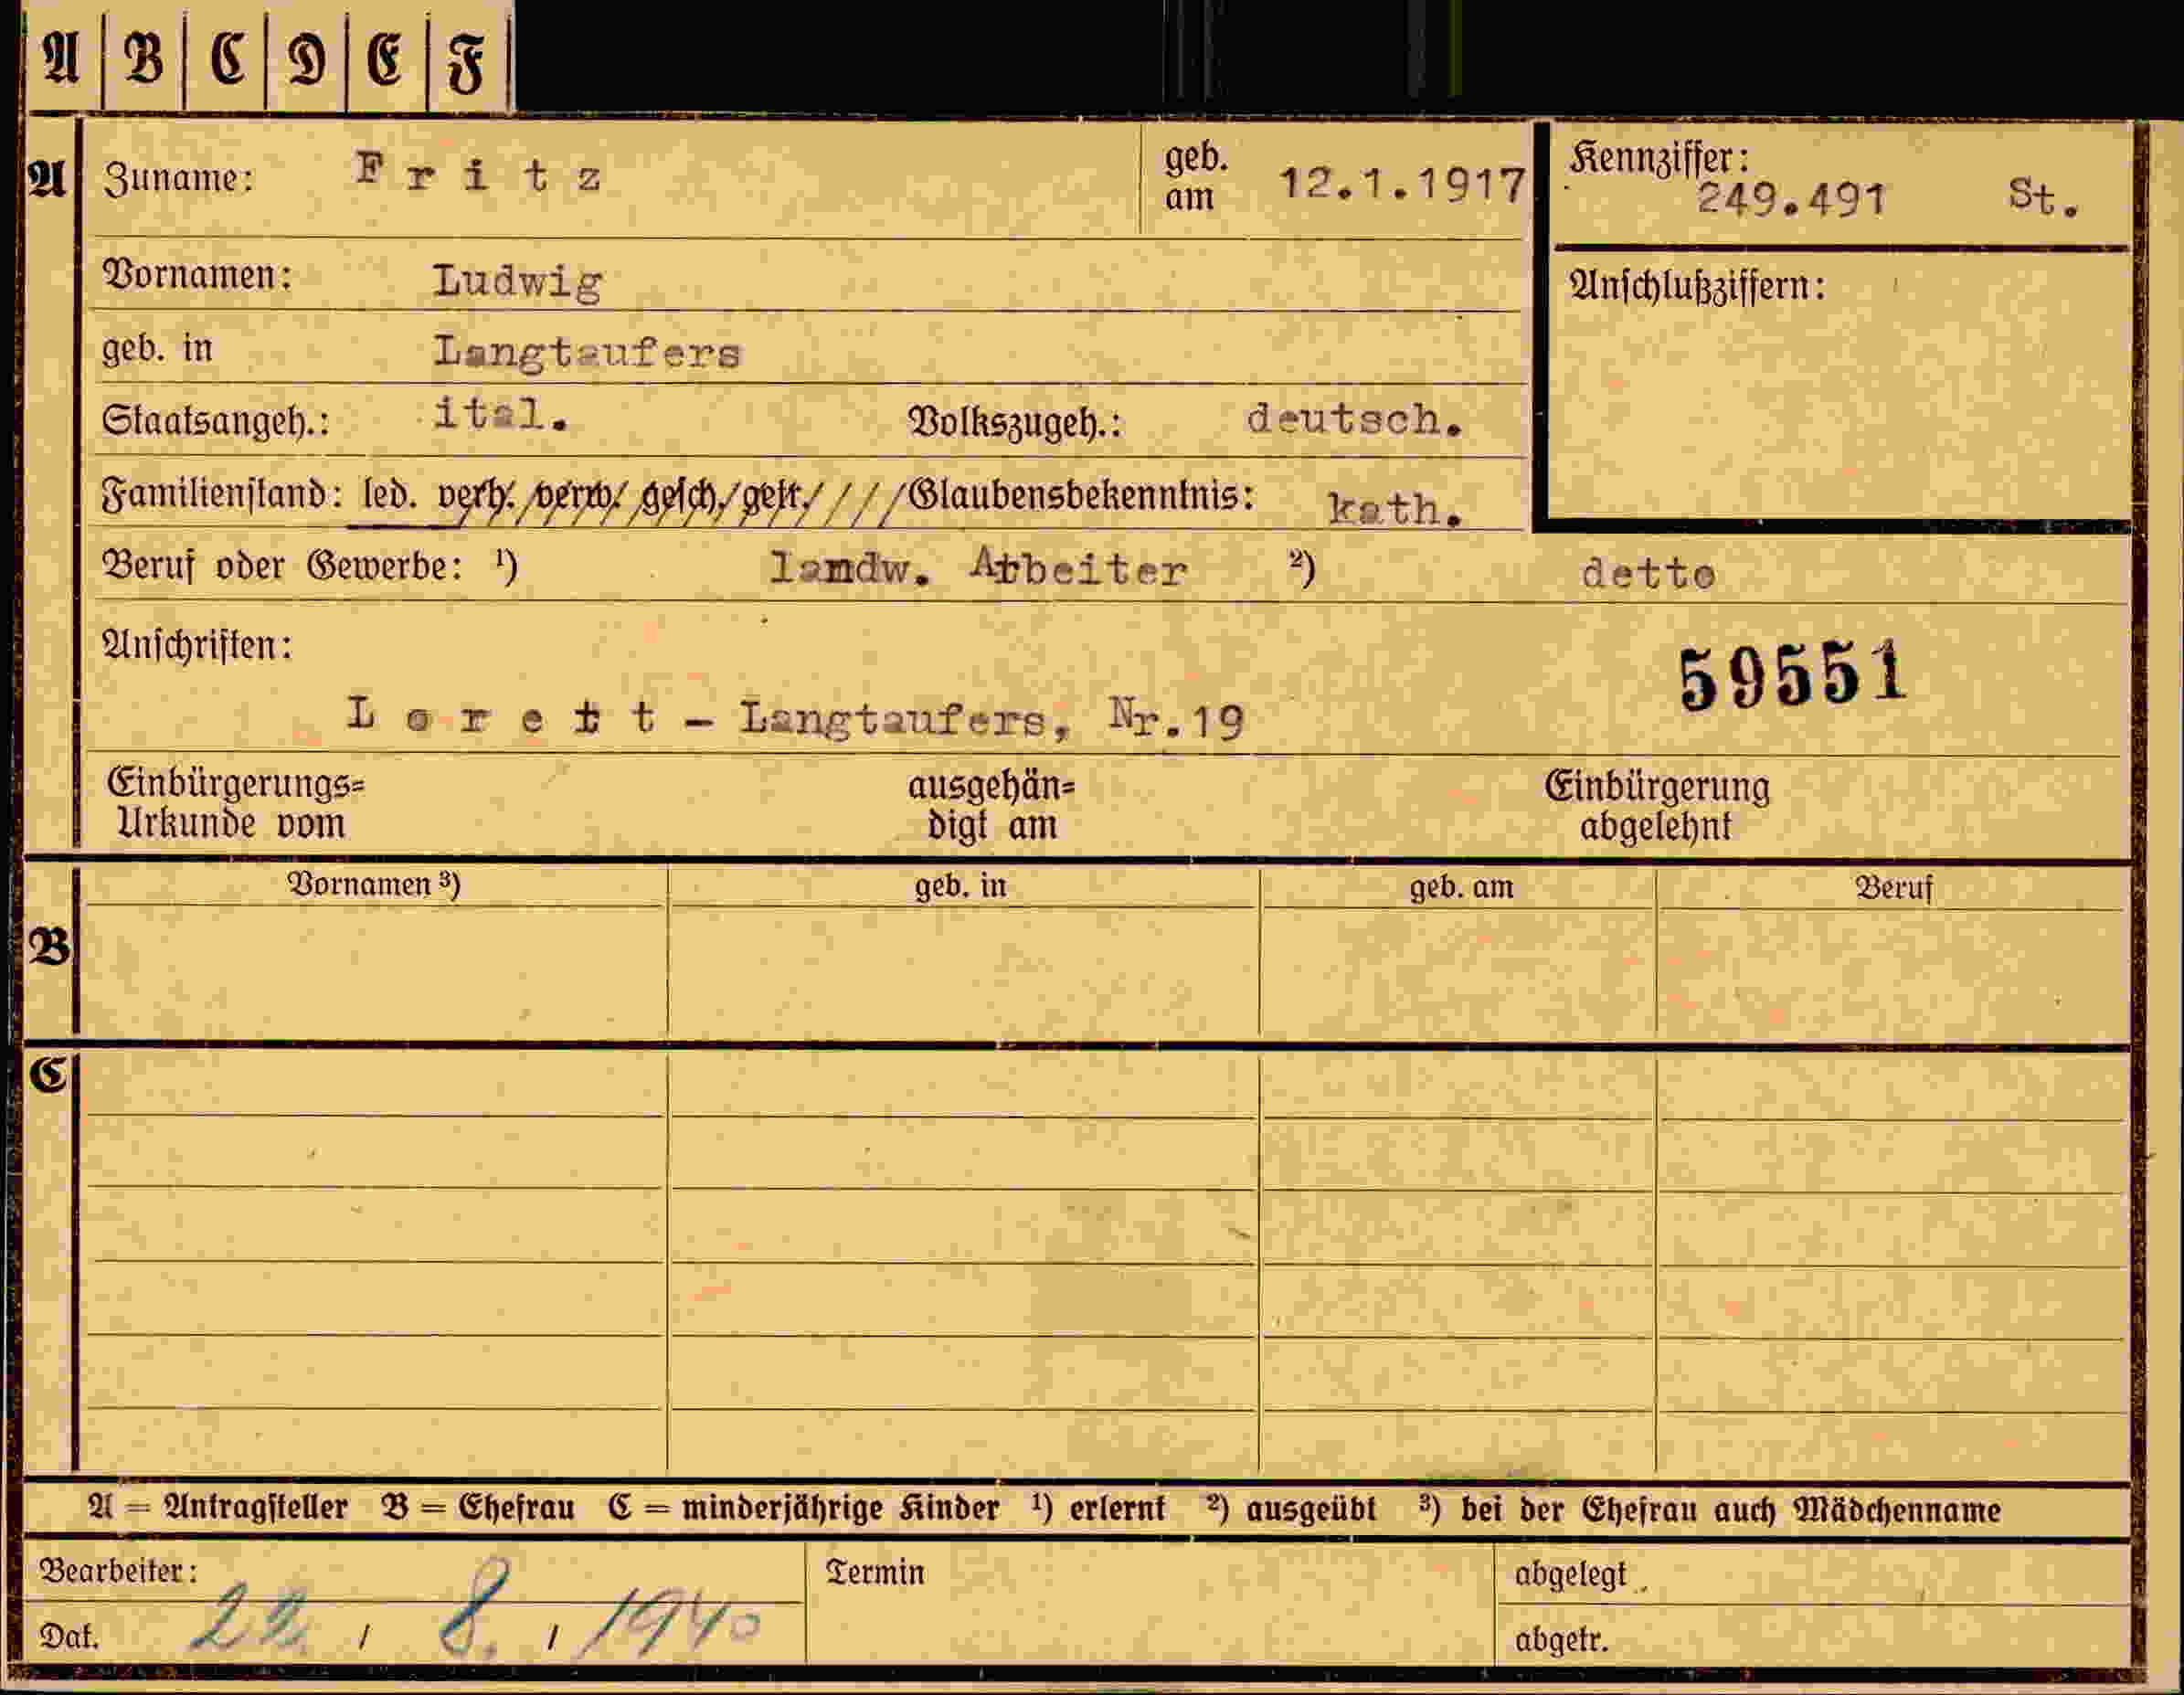 A B C D E F
A Zuname: Fritz geb. am 12.1.1917 Kennziffer: 249.491 St.
Vornamen: Ludwig Anschlußziffern:
geb. in Langtaufers
Staatsangeh.: ital. Volkszugeh.: deutsch.
Familienstand: led. verh. verw. gesch. getr. Glaubensbekenntnis: kath.
Beruf oder Gewerbe: ¹) landw. Arbeiter ²) detto
Anschriften:
59551
Lorett - Langtaufers, Nr.19
Einbürgerungs= ausgehän= Einbürgerung
Urkunde vom digt am abgelehnt
Vornamen ³) geb. in geb. am Beruf
B
C
A = Antragsteller B = Ehefrau C = minderjährige Kinder ¹) erlernt ²) ausgeübt ³) bei der Ehefrau auch Mädchenname
Bearbeiter: Termin abgelegt
Dat. 22. / 8. / 1940 abgetr.